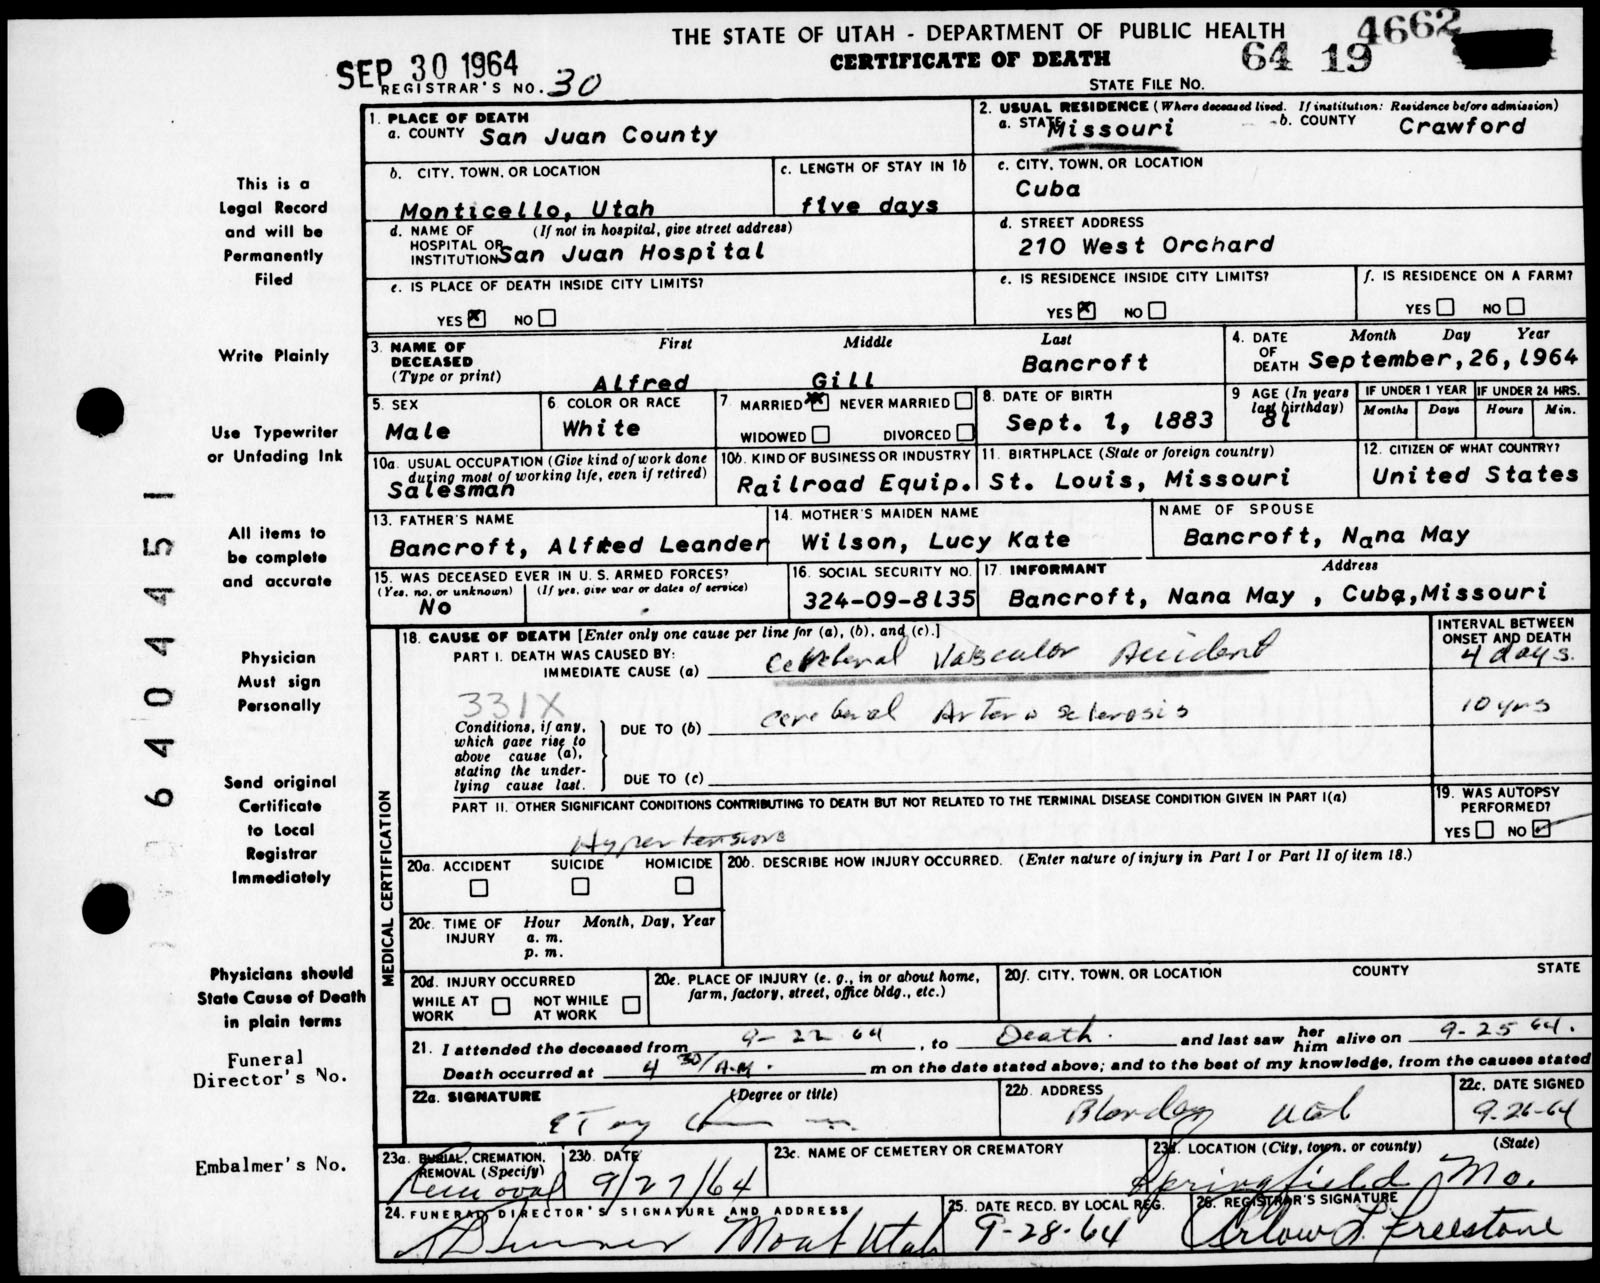 THE STATE OF UTAH - DEPARTMENT OF PUBLIC HEALTH
CERTIFICATE OF DEATH
4662
64 19
STATE FILE NO.
SEP 30 1964
REGISTRAR'S NO. 30
This is a
Legal Record
and will be
Permanently
Filed
Write Plainly
Use Typewriter
or Unfading Ink
All items to
be complete
and accurate
Physician
Must sign
Personally
Send original
Certificate
to Local
Registrar
Immediately
Physicians should
State Cause of Death
in plain terms
Funeral
Director's No.
Embalmer's No.
6404451
1. PLACE OF DEATH
a. COUNTY San Juan County
2. USUAL RESIDENCE (Where deceased lived. If institution: Residence before admission)
a. STATE Missouri b. COUNTY Crawford
b. CITY, TOWN, OR LOCATION
Monticello, Utah
c. LENGTH OF STAY IN 1b
five days
c. CITY, TOWN, OR LOCATION
Cuba
d. NAME OF (If not in hospital, give street address)
HOSPITAL OR
INSTITUTION San Juan Hospital
d. STREET ADDRESS
210 West Orchard
e. IS PLACE OF DEATH INSIDE CITY LIMITS?
YES x NO
e. IS RESIDENCE INSIDE CITY LIMITS?
YES x NO
f. IS RESIDENCE ON A FARM?
YES NO
3. NAME OF
DECEASED
(Type or print)
First Middle Last
Alfred Gill Bancroft
4. DATE OF DEATH
Month Day Year
September, 26, 1964
5. SEX
Male
6. COLOR OR RACE
White
7. MARRIED x NEVER MARRIED
WIDOWED DIVORCED
8. DATE OF BIRTH
Sept. 1, 1883
9 AGE (In years
last birthday)
81
IF UNDER 1 YEAR
Months Days
IF UNDER 24 HRS.
Hours Min.
10a. USUAL OCCUPATION (Give kind of work done
during most of working life, even if retired)
Salesman
10b. KIND OF BUSINESS OR INDUSTRY
Railroad Equip.
11. BIRTHPLACE (State or foreign country)
St. Louis, Missouri
12. CITIZEN OF WHAT COUNTRY?
United States
13. FATHER'S NAME
Bancroft, Alfred Leander
14. MOTHER'S MAIDEN NAME
Wilson, Lucy Kate
NAME OF SPOUSE
Bancroft, Nana May
15. WAS DECEASED EVER IN U.S. ARMED FORCES?
(Yes, no, or unknown) (If yes, give war or dates of service)
No
16. SOCIAL SECURITY NO.
324-09-8135
17. INFORMANT Address
Bancroft, Nana May , Cuba, Missouri
MEDICAL CERTIFICATION
18. CAUSE OF DEATH [Enter only one cause per line for (a), (b), and (c).]
INTERVAL BETWEEN
ONSET AND DEATH
PART I. DEATH WAS CAUSED BY:
IMMEDIATE CAUSE (a) Cerebral Vascular Accident 4 days.
331X
Conditions, if any,
which gave rise to
above cause (a),
stating the under-
lying cause last.
DUE TO (b) cerebral Arterio sclerosis 10 yrs
DUE TO (c)
PART II. OTHER SIGNIFICANT CONDITIONS CONTRIBUTING TO DEATH BUT NOT RELATED TO THE TERMINAL DISEASE CONDITION GIVEN IN PART I(a)
Hypertension
19. WAS AUTOPSY
PERFORMED?
YES NO ✓
20a. ACCIDENT SUICIDE HOMICIDE
20b. DESCRIBE HOW INJURY OCCURRED. (Enter nature of injury in Part I or Part II of item 18.)
20c. TIME OF INJURY
Hour Month, Day, Year
a. m.
p. m.
20d. INJURY OCCURRED
WHILE AT WORK NOT WHILE AT WORK
20e. PLACE OF INJURY (e. g., in or about home,
farm, factory, street, office bldg., etc.)
20f. CITY, TOWN, OR LOCATION COUNTY STATE
21. I attended the deceased from 9-22 64, to Death. and last saw her him alive on 9-25 64.
Death occurred at 4 30/A.M. m on the date stated above; and to the best of my knowledge, from the causes stated
22a. SIGNATURE (Degree or title)
22b. ADDRESS
22c. DATE SIGNED
9-26-64
23a. BURIAL, CREMATION,
REMOVAL (Specify)
Removal
23b. DATE
9/27/64
23c. NAME OF CEMETERY OR CREMATORY
23d. LOCATION (City, town, or county) (State)
Springfield Mo.
24. FUNERAL DIRECTOR'S SIGNATURE AND ADDRESS
Utah
25. DATE RECD. BY LOCAL REG.
9-28-64
26. REGISTRAR'S SIGNATURE
Arlow L. Freestone